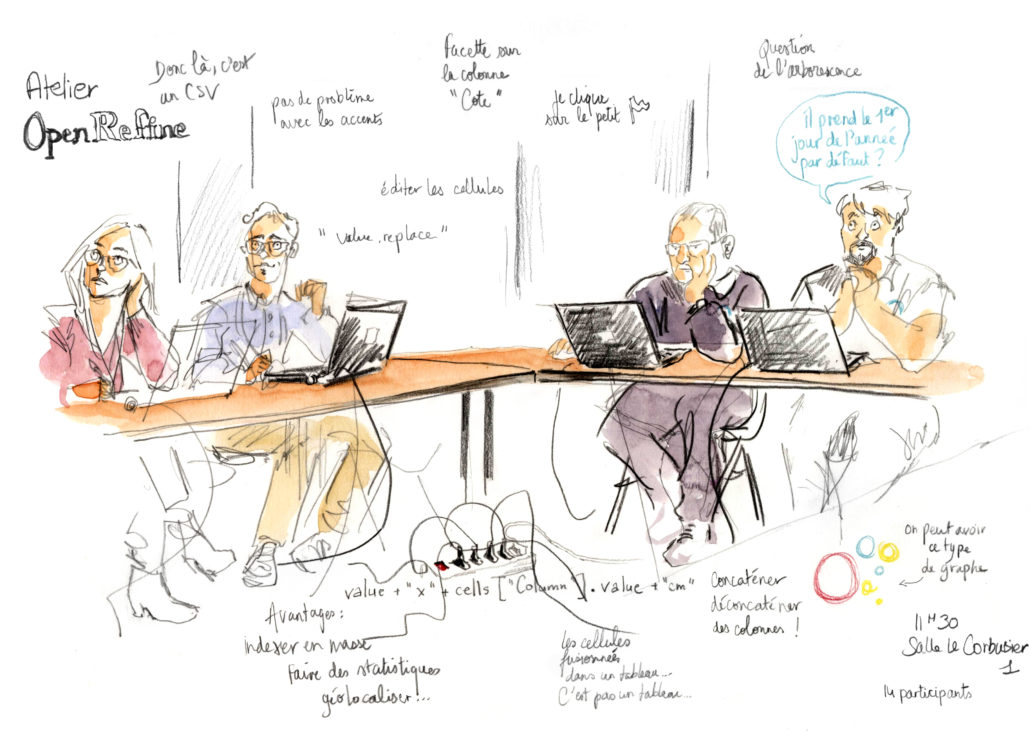 Atelier
OpenReffine
Donc là, c'est
un CSV
pas de problème
avec les accents
facette sur
la colonne
"Cote"
Je clique
sur le petit
Question
de l'arborescence
il prend le 1er
jour de l'année
par défaut ?
éditer les cellules
"value.replace"
value + "x" + cells ["Column"]. value + "cm"
Avantages :
indexer en masse
faire des statistiques
géolocaliser !...
Les cellules
fusionnées
dans un tableau...
C'est pas un tableau...
Concaténer
déconcaténer
des colonnes !
On peut avoir
ce type
de graphe
11H30
Salle le Corbusier
1
14 participants